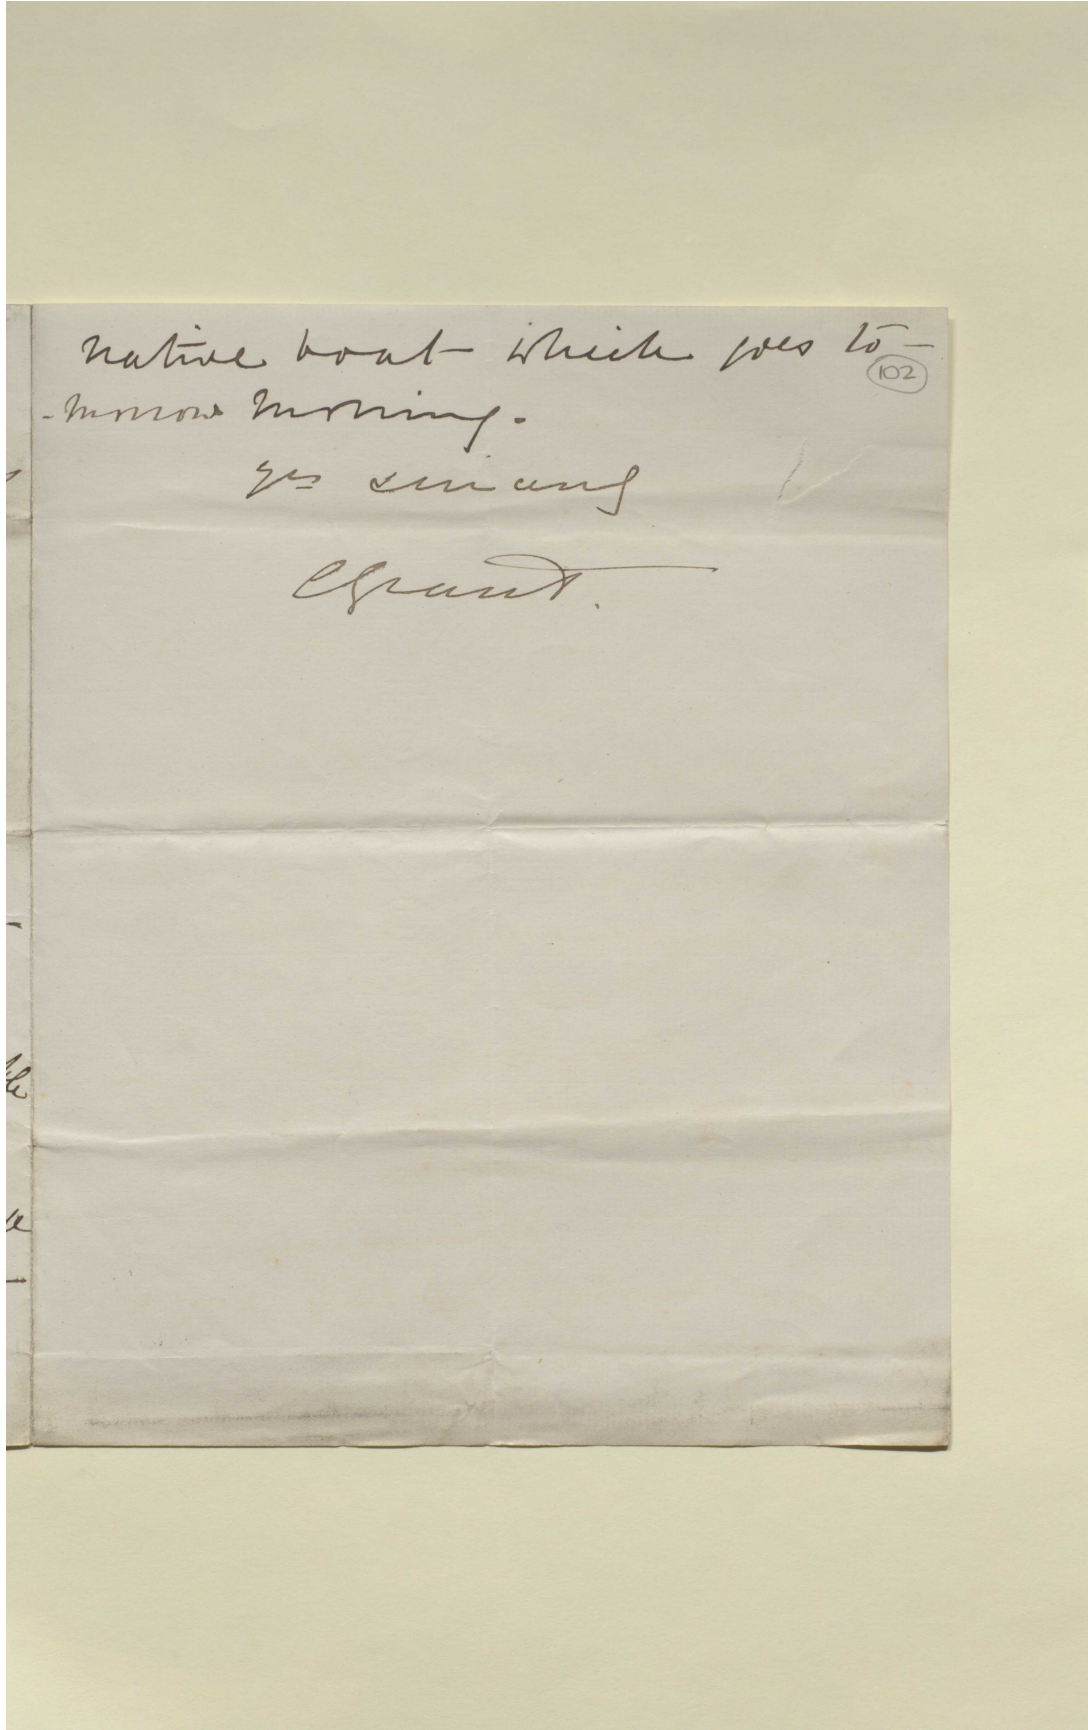 native boat which goes to-
102
-morrow morning.
yrs sincerely
CGrant.